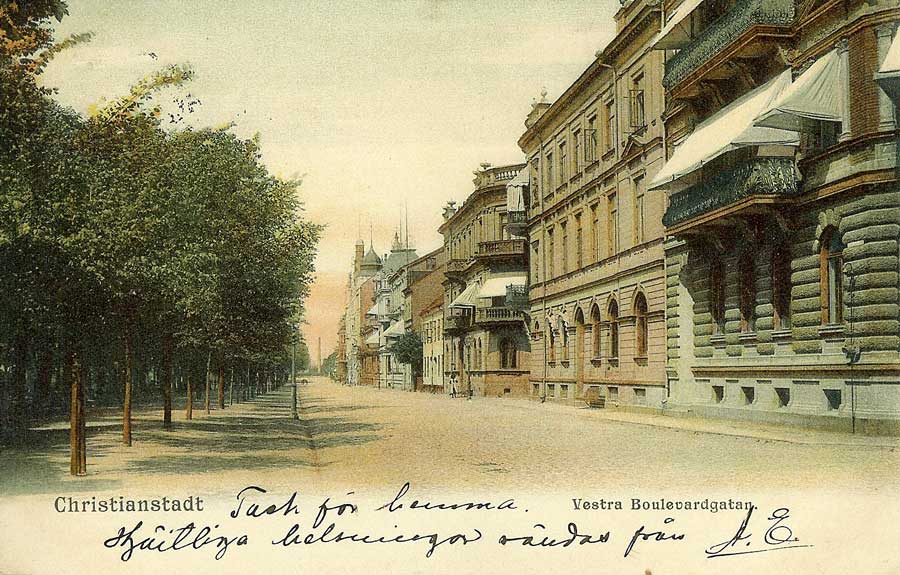 Christianstadt
Tack för hemma.
Vestra Boulevardgatan.
Hjärtliga helsningar sändas från A. E.